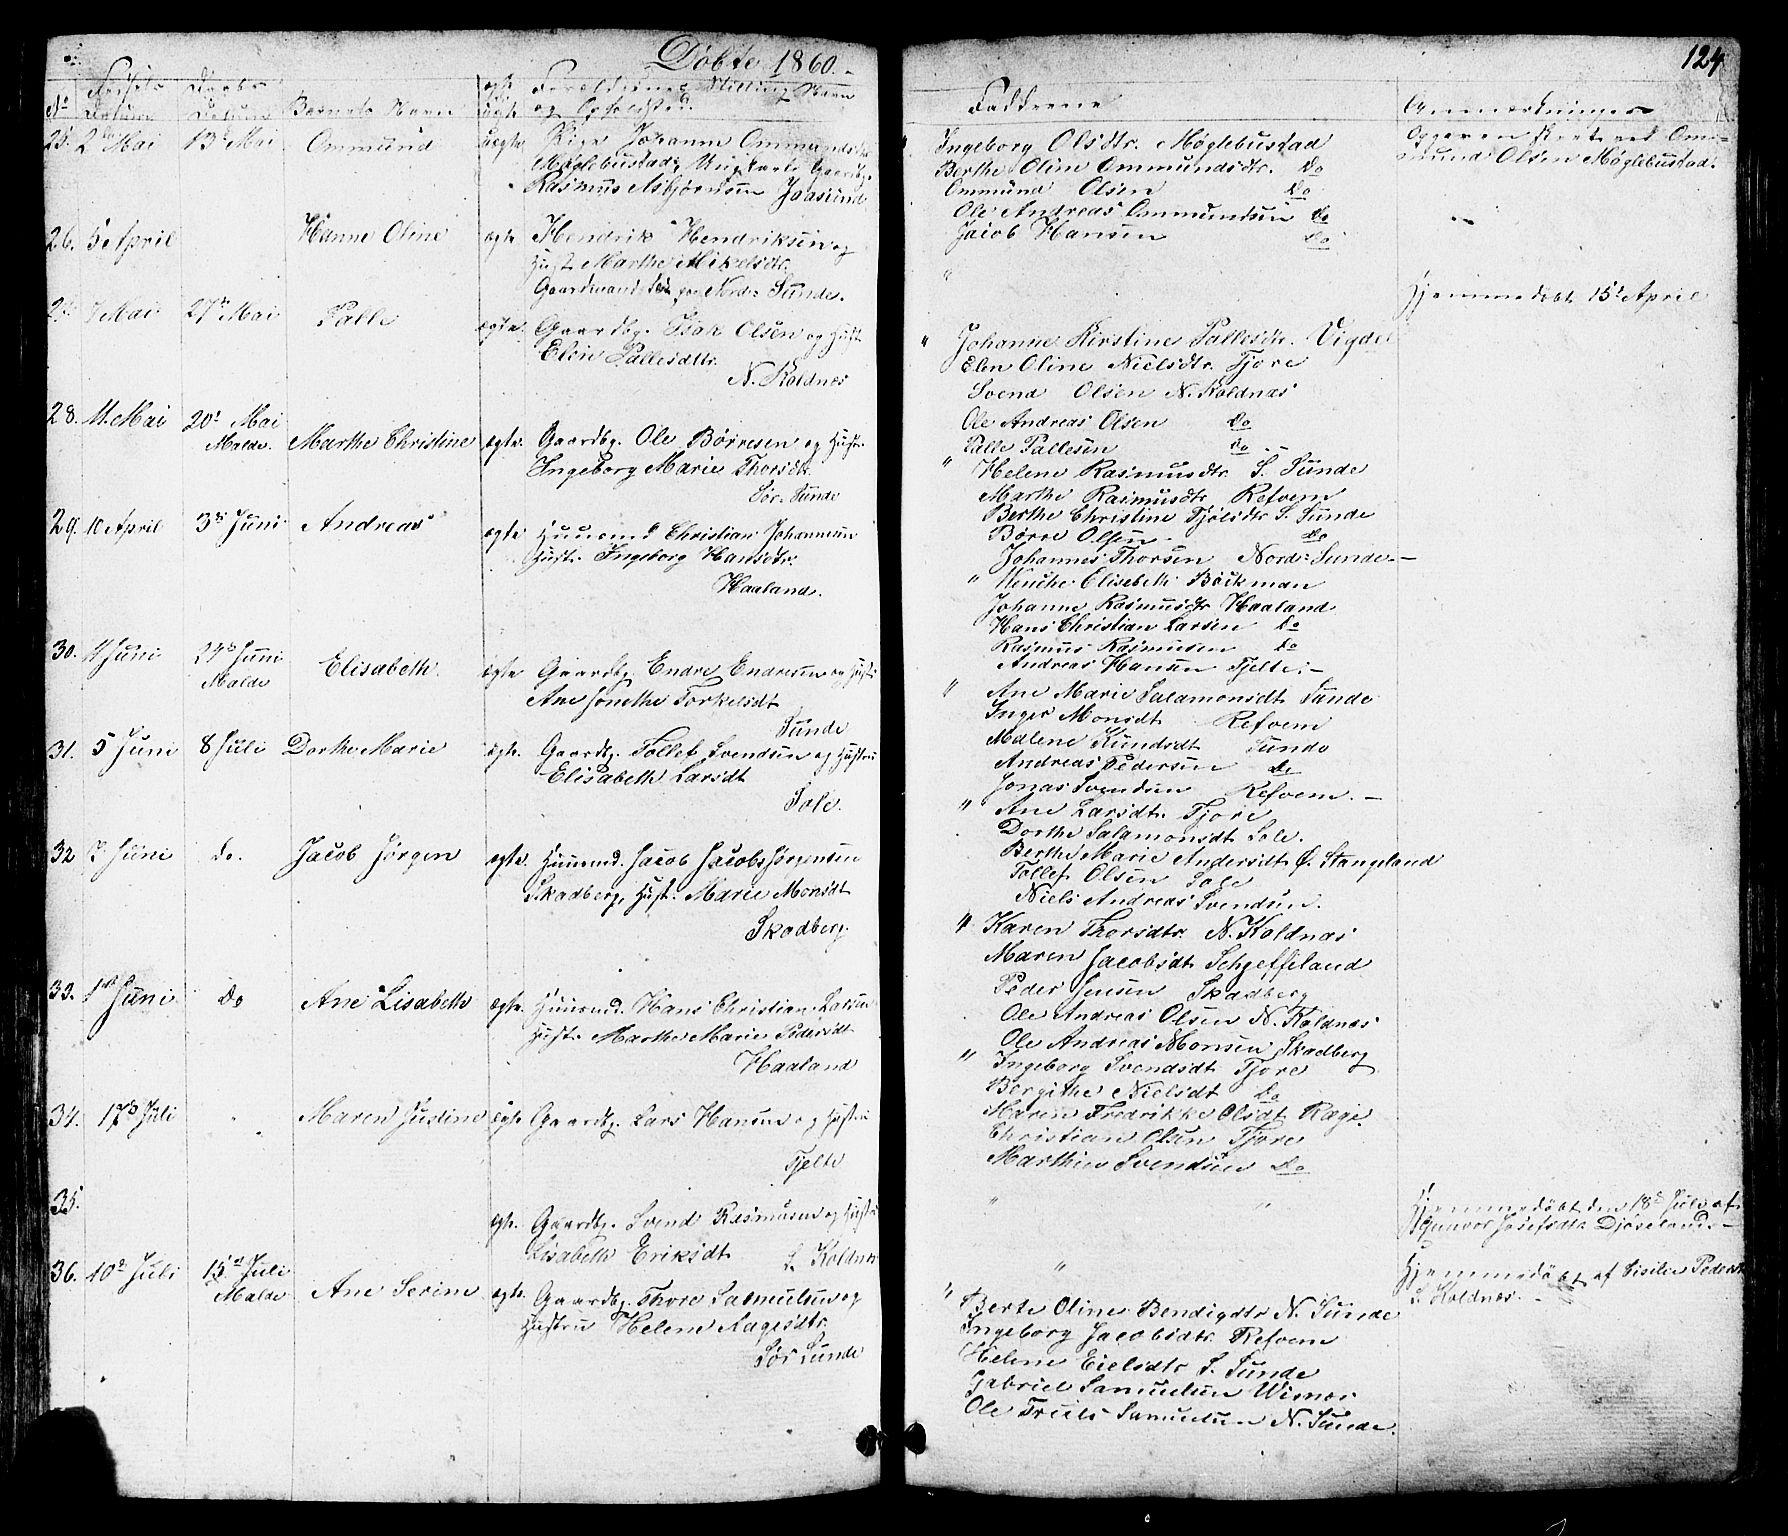 Döbte 1860.
124
No Fødsels Datum Daabs Datum Barnets Navn ægte uægte Forældrenes Stilling Navn og Opholdsted.
Fadderne
Anmærkninger
25. 2den Mai 13de Mai Ommund uægte Pige Johanne Ommundsdtr
Møglebustad, Ungkarl Gaardbg.
Rasmus Asbjørnsen Jaasund
" Ingeborg Olsdtr. Møglebustad
Berthe Oline Ommundsdtr. Do
Ommund Olsen Do
Ole Andreas Ommundsen Do
Jacob Hansen Do
Opgaven skete ved Om-
mund Olsen Møglebustad.
26. 5te April Hanne Oline ægte Hendrik Hendriksen og
Hust. Marthe Mikelsdtr.
Gaardmand paa Nord-Sunde.
"
Hjemmedøbt 15de April
27. 7 Mai 27de Mai Palle ægte Gaardbg. Isak Olsen og Hust.
Elen Pallesdttr.
N. Koldnes
" Johanne Kirstine Pallesdtr. Vigdel
Elen Oline Nielsdtr. Tjore
Svend Olsen N. Koldnæs
Ole Andreas Olsen Do
Palle Pallesen Do.-
28. 11. Mai 20de Mai Malde. Marthe Christine ægte. Gaardbg. Ole Børresen og Hustr.
Ingeborg Marie Thorsdtr.
Sør-Sunde
" Helene Rasmusdtr. S. Sunde
Marthe Rasmusdtr Refvem
Berthe Christine Tjølsdtr S. Sunde
Børre Olsen Do
Johannes Thorsen Nord-Sunde.-
29. 10 April 3de Juni Andreas ægte Huusmd Christian Johannesen
Hustr. Ingeborg Hansdtr.
Haaland.
" Wenche Elisebeth Böckman
Johanne Rasmusdtr Haaland
Hans Christian Larsen Do
Rasmus Rasmusen Do
Andreas Hansen Tjelte.-
30. 4 Juni 24de Juni Malde Elisabeth. ægte Gaardbg. Endre Endresen og Hustr
Ane Jonethe Torkelsdt
Sunde
" Ane Marie Salamonsdt Sunde
Inger Monsdt Refvem
Malene Knudsdt Sunde
Andreas Pedersen Do
Jonas Svendsen Refvem.-
31. 5 Juni 8 Juli Dorthe Marie ægte. Gaardbg. Tollef Svendsen og Hustru
Elisabeth Larsdt
Sole.
" Ane Larsdt. Tjore
Dorthe Salamonsdt Sole.
Berthe Marie Andersdt Ø. Stangeland
Tollef Olsen Sole
Niels Andreas Svendsen.
32 Juni do. Jacob Jørgen ægte. Huusmd. Jacob Jacobsjørgensen
Skadberg, Hust. Marie Monsdt
Skadberg.
" Karen Thorsdtr. N. Koldnæs
Maren Jacobsdt Schjeffeland
Peder Jensen Skadberg
Ole Andreas Olsen N. Koldnæs
Ole Andreas Monsen Skadberg
33. 1ste Juni Do Ane Lisabeth ægte. Huusmd. Hans Christian Larsen
Hustr. Marthe Marie Pedersdt
Haaland
" Ingeborg Svendsdt Tjore
Bergithe Nielsdt Do
Maren Fredrikke Olsdt Rage.
Christian Olsen Tjore
Marthin Svendsen Do
34. 17de Juli Maren Justine ægte Gaardbg. Lars Hansen og Hustru
Tjelte
" "
Hjemmedøbt den 18de Juli af
Gunvor Josefsdtr Djøseland.-
35. ægte. Gaardbg. Svend Rasmusen og Hustru
Lisabeth Eriksdt S. Koldnes
"
Hjemmedøbt af Sisilie Pedersdt
S. Koldnes.-
36. 10de Juli 15de Juli Malde Ane Serine ægte. Gaardbg. Thore Samuelsen og
Hustru Helene Aagesdtr.
Sør Sunde
" Berte Oline Bendigsdtr N. Sunde
Ingeborg Jacobsdtr. Refvem
Helene Eielsdtr S. Sunde
Gabriel Samuelsen Wisnæs
Ole Truls Samuelsen N. Sunde.